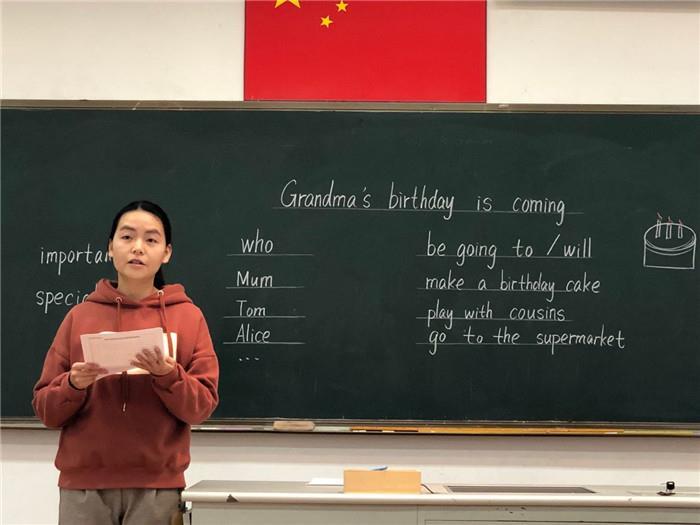 Grandma's birthday is coming
who be going to / will
Mum make a birthday cake
Tom play with cousins
Alice go to the supermarket
...